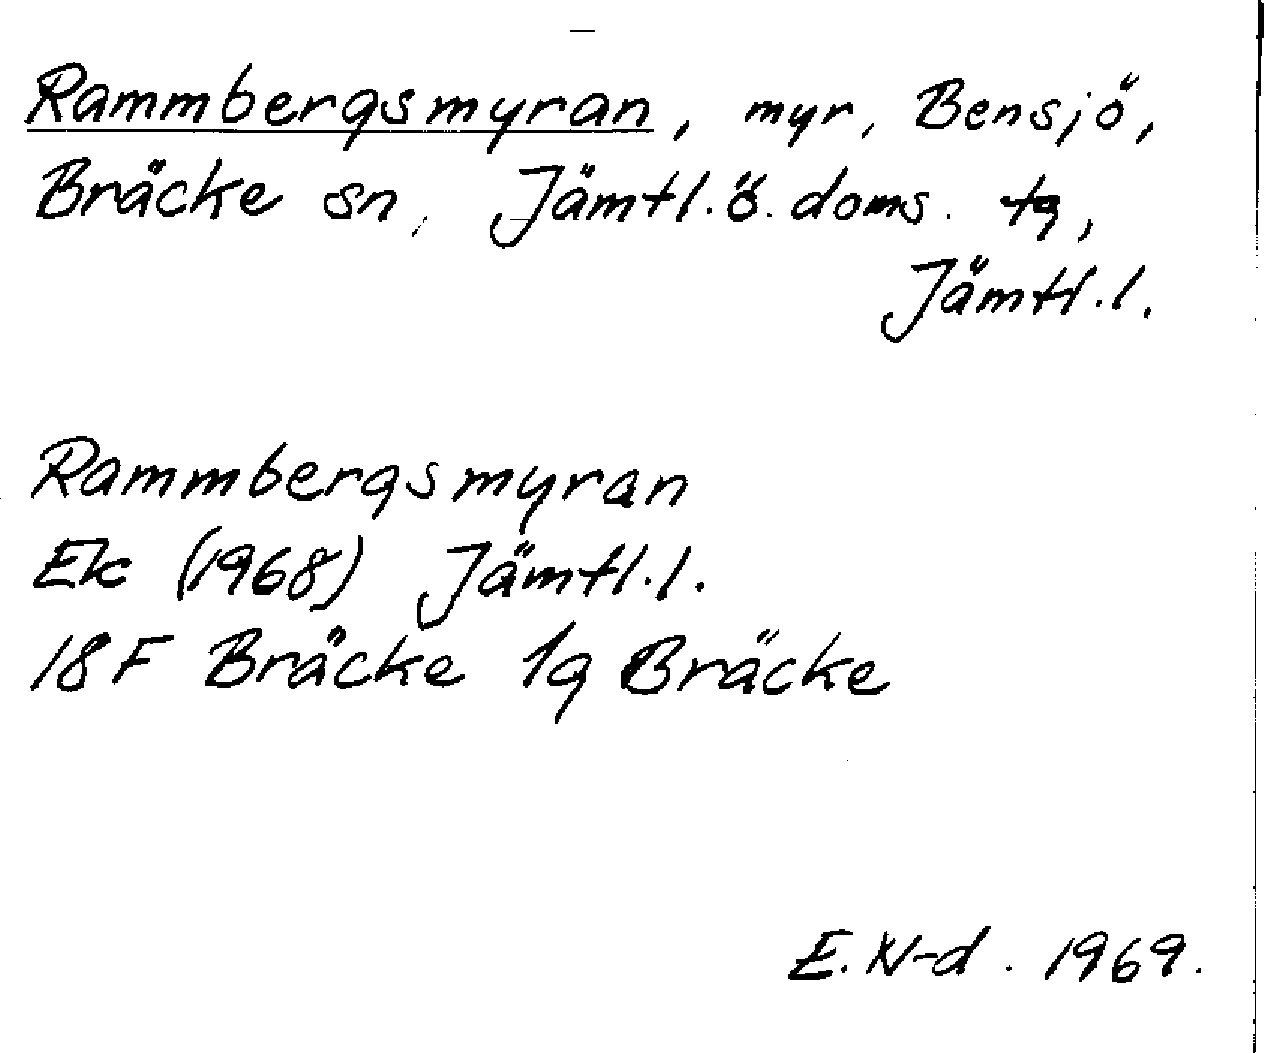 Rammbergsmyran, myr, Bensjö,
Bräcke sn, Jämtl.ö.doms. tg,
Jämtl.l.
Rammbergsmyran
Ek (1968) Jämtl.l.
18F Bräcke 1g Bräcke
E.N-d. 1969.